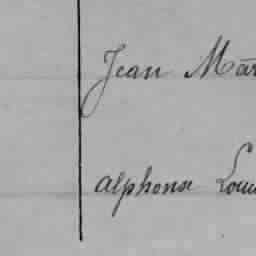 Jean Mar
Alphonse Loui